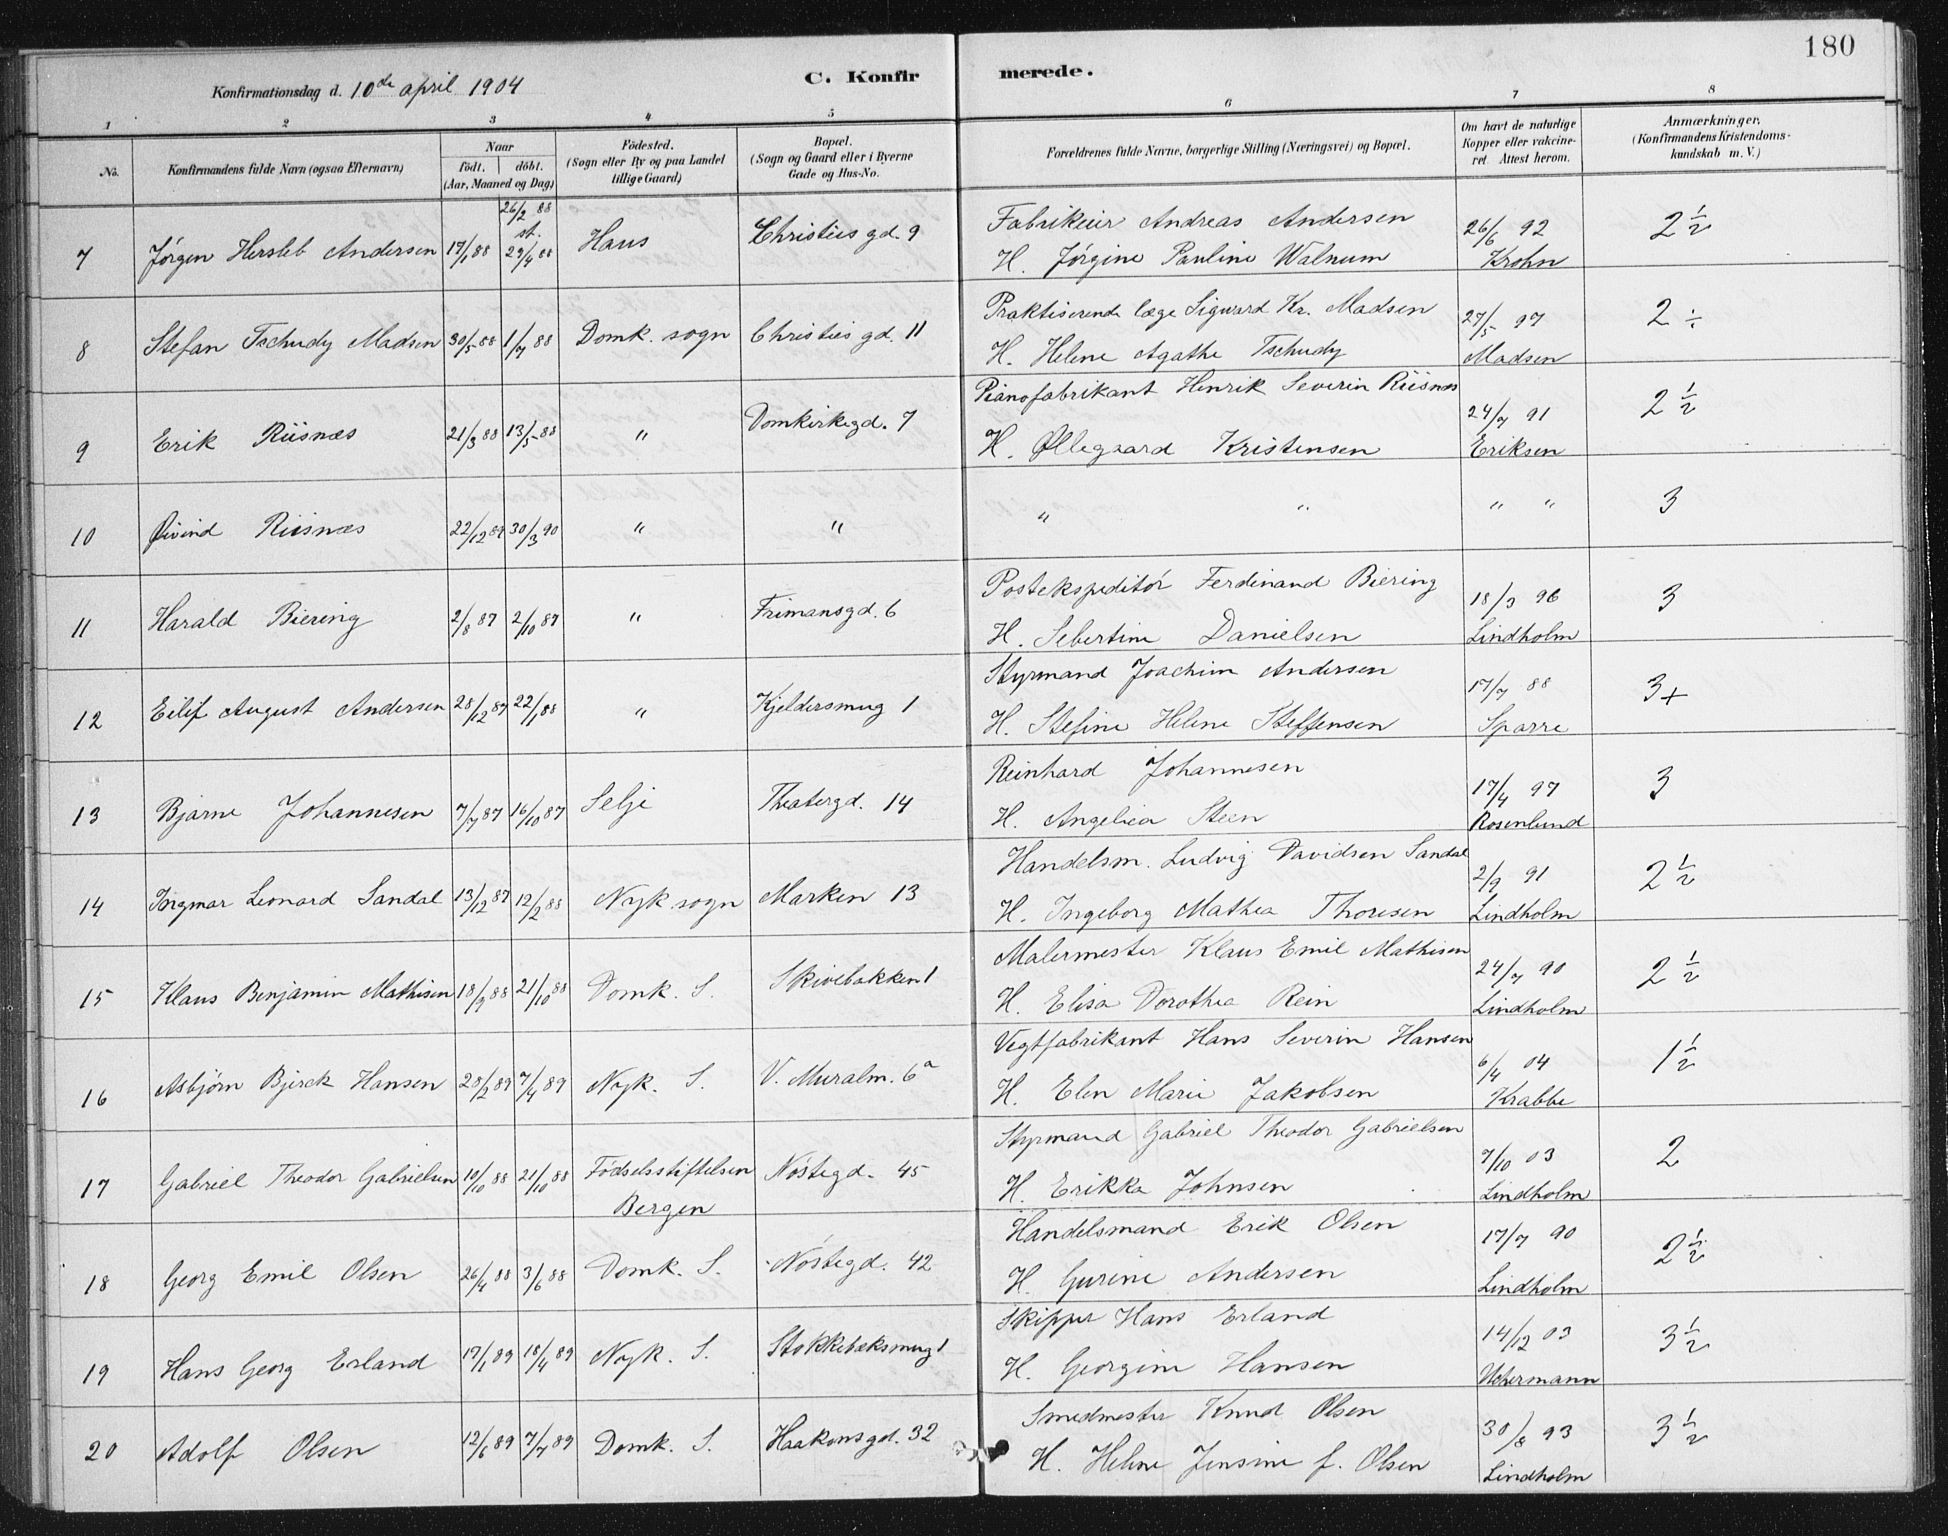 180
C. Konfirmerede.
Konfirmationsdag d. 10de april 1904
1 2 3 4 5 6 7 8
No.
Konfirmandens fulde Navn (ogsaa Efternavn)
Naar
födt. döbt.
(Aar, Maaned og Dag)
Födested.
(Sogn eller By og paa Landet
tillige Gaard)
Bopæl.
(Sogn og Gaard eller i Byerne
Gade og Hus-No.
Forældrenes fulde Navne, borgerlige Stilling (Næringsvei) og Bopæl.
Om havt de naturlige
Kopper eller vakcineret
Attest herom.
Anmærkninger.
(Konfirmandens Kristendoms-
kundskab m. V.)
26/2 88
st.
7 Jørgen Hersleb Andersen 17/1 88 29/4 88 Haus Christies gd. 9
Fabrikeier Andreas Andersen 26/6 92 2 1/2
H. Jørgine Pauline Walnum Krohn
8 Stefan Tschudy Madsen 30/5 88 1/7 88 Domk. sogn Christies gd. 11
Praktiserende læge Sigward Kr. Madsen 27/5 97 2 ÷
H. Helene Agathe Tschudy Madsen
9 Erik Riisnæs 21/3 88 13/5 88 " Domkirkegd. 7
Pianofabrikant Henrik Severin Riisnæs 24/7 91 2 1/2
H. Øllegaard Kristensen Eriksen
10 Øivind Riisnæs 22/12 89 30/3 90 " "
" " " " 3
11 Harald Biering 2/8 87 2/10 87 " Frimansgd. 6
Postekspeditør Ferdinand Biering 18/3 96 3
H. Sebertine Danielsen Lindholm
12 Eilif August Andersen 28/12 87 22/1 88 " Kjeldersmug 1
Styrmand Joachim Andersen 17/7 88 3+
H. Stefine Helene Steffensen Sparre
13 Bjarne Johannesen 7/7 87 16/10 87 Selje Theatergd. 14
Reinhard Johannesen 17/4 97 3
H. Angelica Steen Rosenlund
14 Ingmar Leonard Sandal 13/12 87 12/2 88 Nyk sogn Marken 13
Handelsm. Ludvig Davidsen Sandal 2/9 91 2 1/2
H. Ingeborg Mathea Thoresen Lindholm
15 Klaus Benjamin Mathisen 18/9 88 21/10 88 Domk. S. Skivebakken 1
Malermester Klaus Emil Mathisen 24/7 90 2 1/2
H. Elisa Dorothea Rein Lindholm
16 Asbjörn Bjerck Hansen 28/2 89 7/4 89 Nyk. S. V. Muralm. 6a
Vegtfabrikant Hans Severin Hansen 6/4 04 1 1/2
H. Elen Marie Jakobsen Krabbe
17 Gabriel Theodor Gabrielsen 10/10 88 21/10 88 Födselsstiftelsen Nöstegd. 45
Bergen
Styrmand Gabriel Theodor Gabrielsen 7/10 03 2
H. Erikka Johnsen Lindholm
18 Georg Emil Olsen 26/4 88 3/6 88 Domk. S. Nöstegd. 42
Handelsmand Erik Olsen 17/7 90 2 1/2
H. Gurine Andersen Lindholm
19 Hans Georg Erland 17/1 89 18/4 89 Nyk. S. Stokkebæksmug 1
Skipper Hans Erland 14/12 03 3 1/2
H. Georgine Hansen Uchermann
20 Adolf Olsen 12/6 89 7/7 89 Domk. S. Haakonsgd. 32
Smedmester Knud Olsen 30/8 93 3 1/2
H. Helene Jensine f. Olsen Lindholm